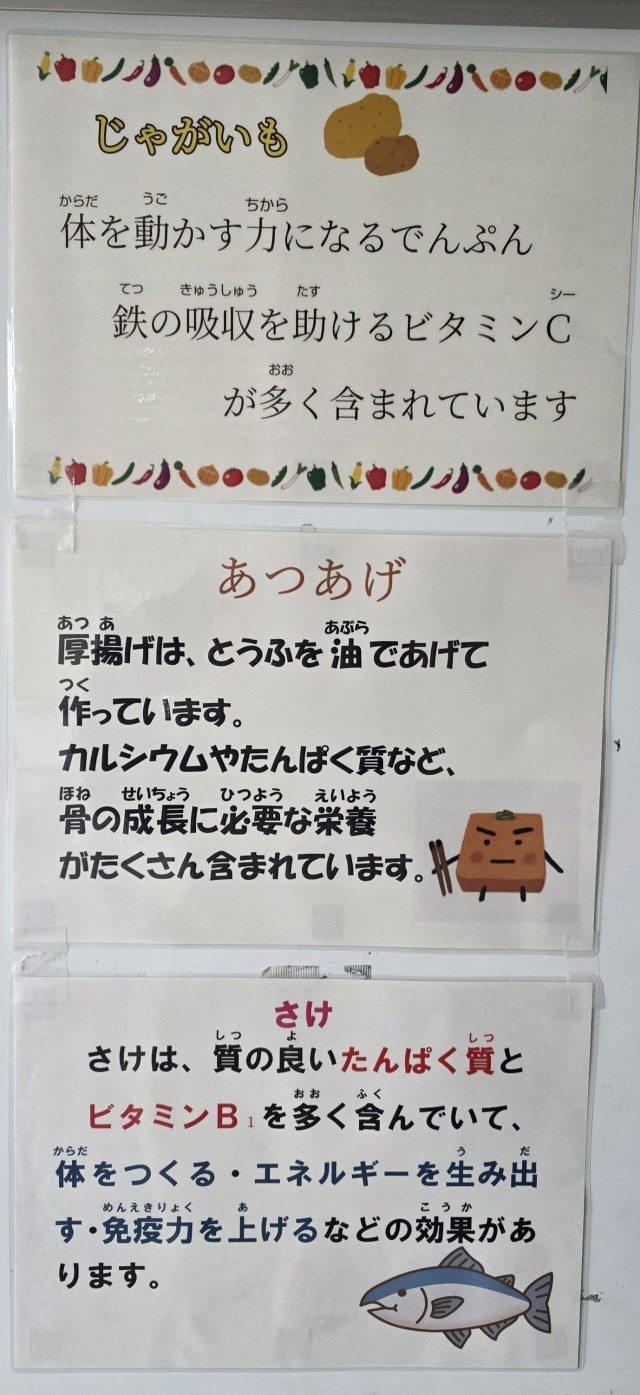 じゃがいも
からだ うご ちから
体を動かす力になるでんぷん
てつ きゅうしゅう たす シー
鉄の吸収を助けるビタミンC
おお
が多く含まれています
あつあげ
あつ あ あぶら
厚揚げは、とうふを油であげて
つく
作っています。
カルシウムやたんぱく質など、
ほね せいちょう ひつよう えいよう
骨の成長に必要な栄養
がたくさん含まれています。
さけ
しつ よ しつ
さけは、質の良いたんぱく質と
おお ふく
ビタミンB1を多く含んでいて、
からだ う だ
体をつくる・エネルギーを生み出
めんえきりょく あ こうか
す・免疫力を上げるなどの効果があ
ります。